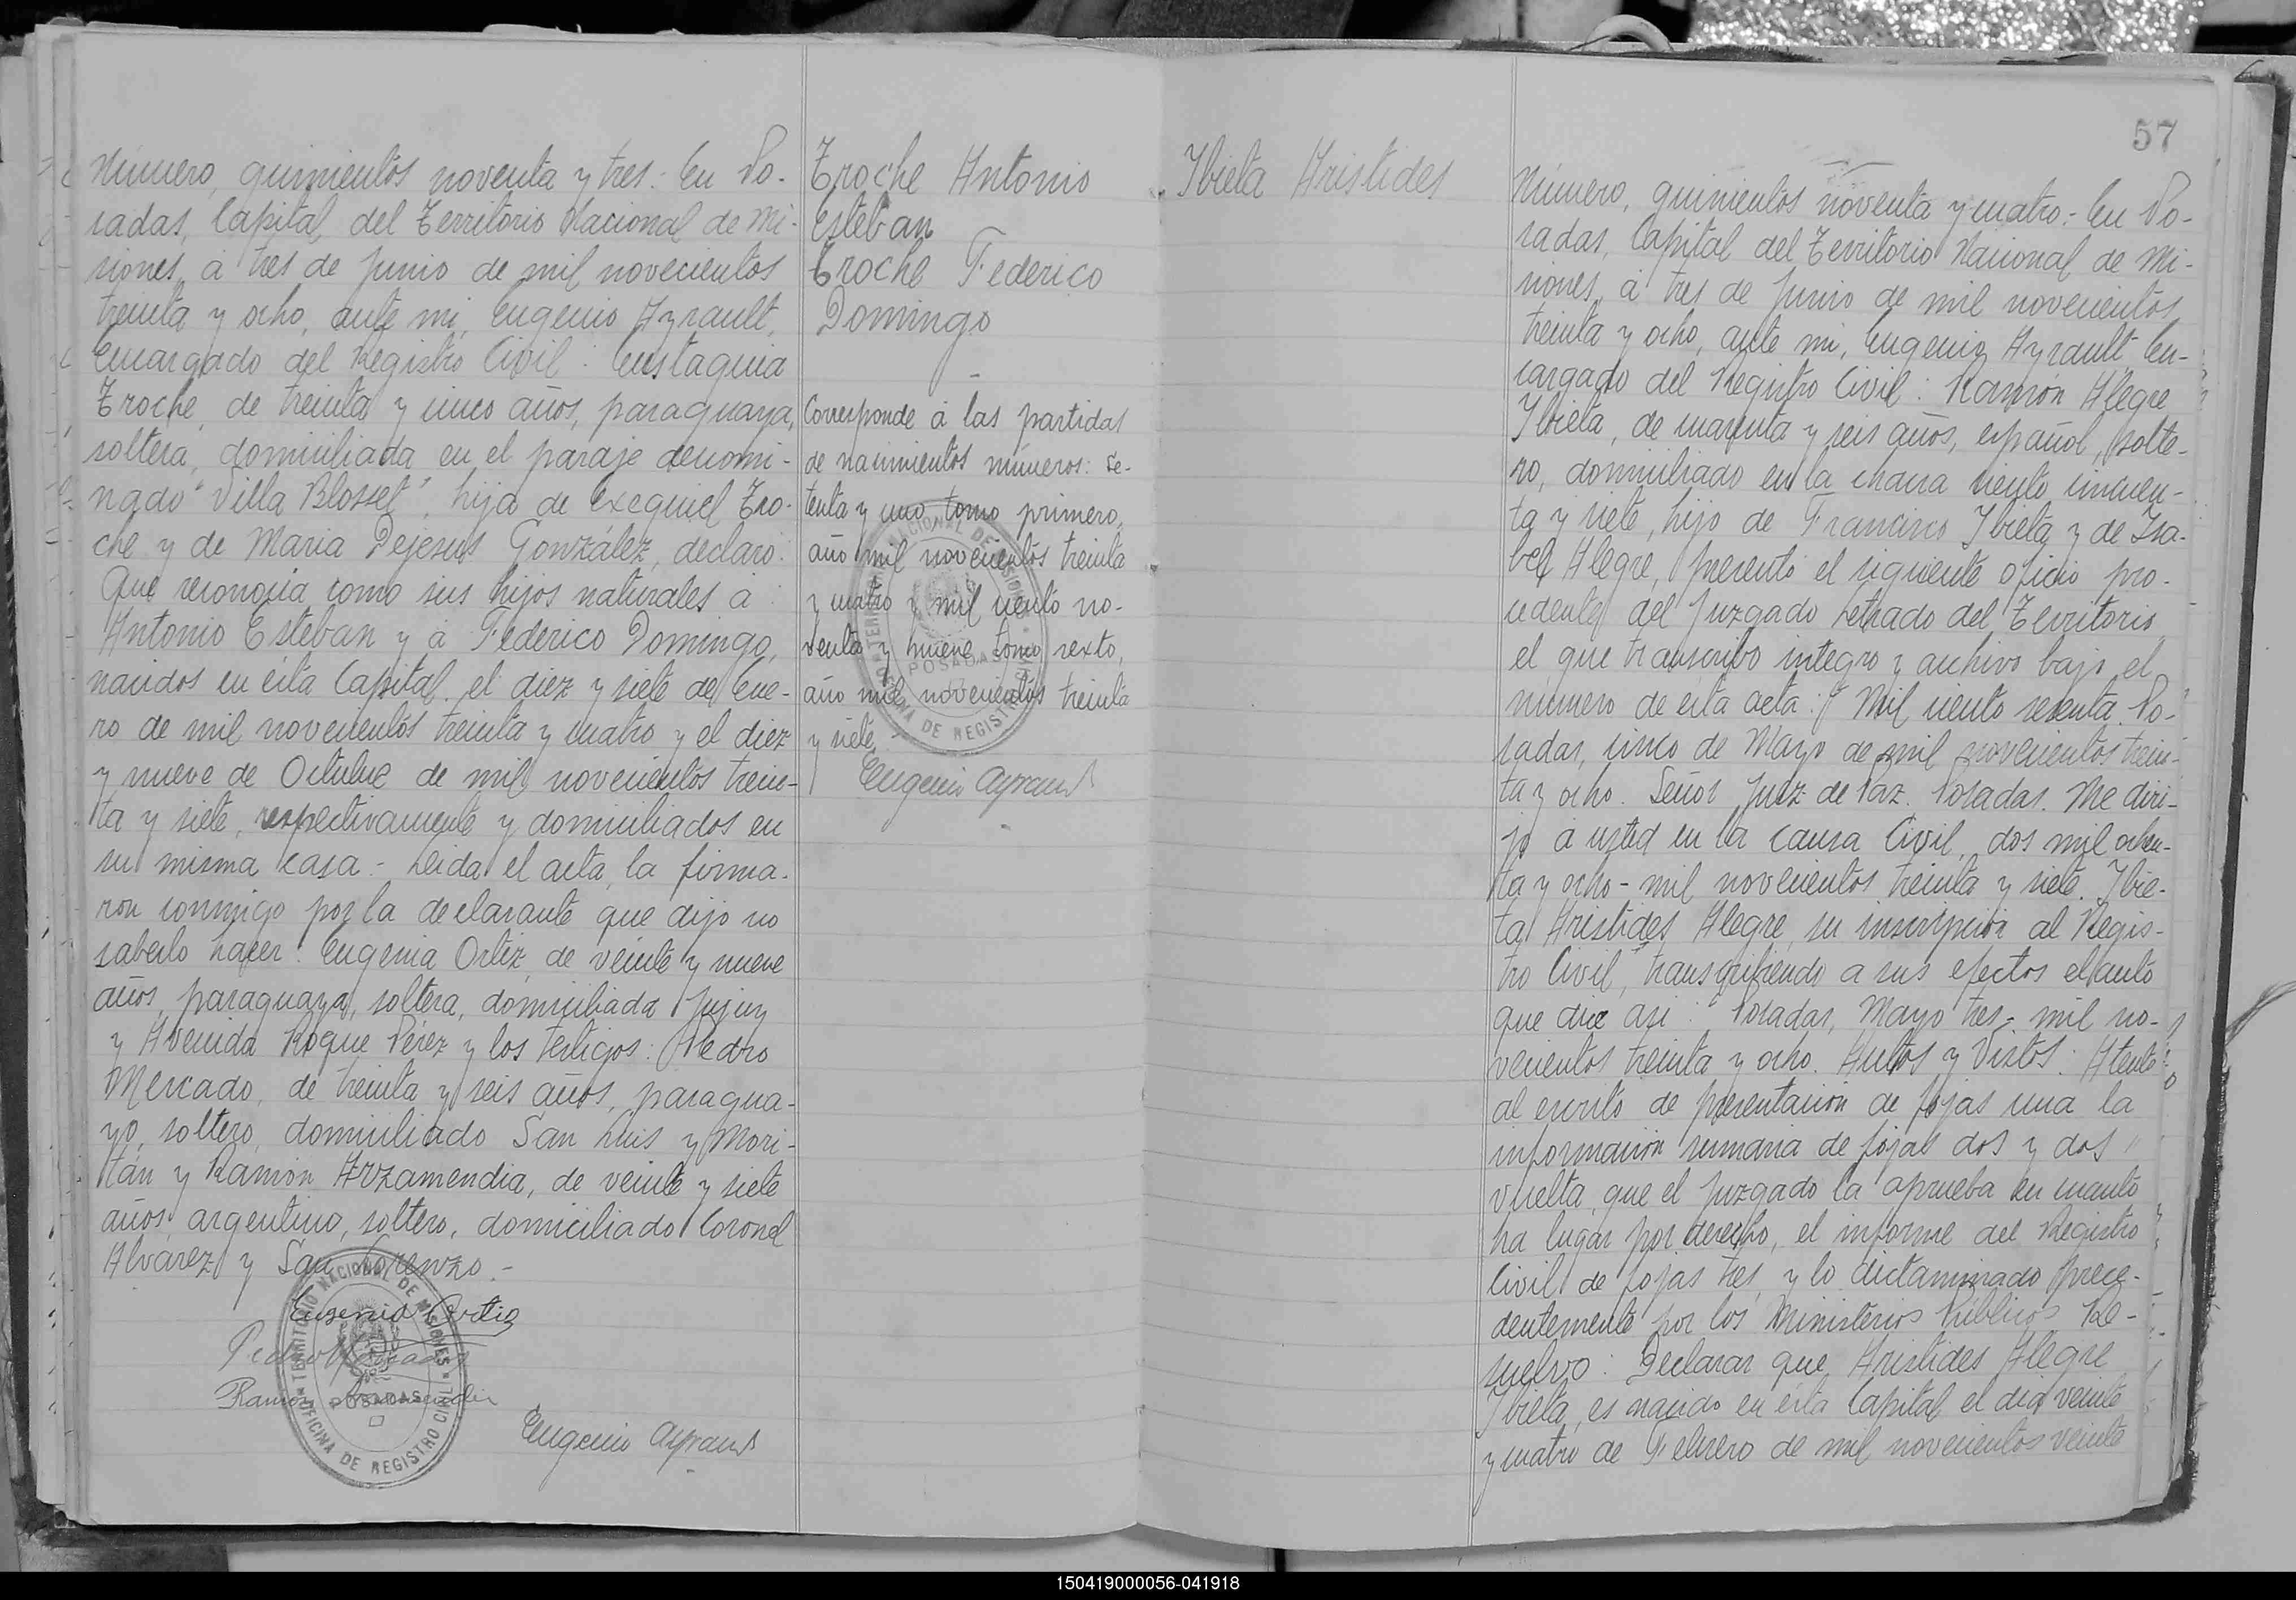 Número, quinientos noventa y tres: En Po-
sadas, Capital, del Territorio Nacional de Mi-
siones, á tres de Junio de mil novecientos
treinta y ocho, ante mi, Eugenio Ayrault,
Encargado del Registro Civil: Eustaquia
Troche, de treinta y cinco años, paraguaya,
soltera, domiciliada en el paraje denomi-
nado "Villa Blosset", hija de Exequiel Tro-
che y de Maria Dejesus González, declaró:
Que reconocía como sus hijos naturales á:
Antonio Esteban y á Federico Domingo,
nacidos en ésta Capital, el diez y siete de Ene-
ro de mil novecientos treinta y cuatro y el diez
y nueve de Octubre de mil novecientos trein-
ta y siete, respectivamente y domiciliados en
su misma casa.- Leida el acta, la firma-
ron conmigo por la declarante que dijo no
saberlo hacer: Eugenia Ortiz, de veinte y nueve
años, paraguaya, soltera, domiciliada Jujuy
y Avenida Roque Pérez y los testigos: Pedro
Mercado, de treinta y seis años, paragua-
yo, soltero, domiciliado San Luis y Mori-
tán y Ramón Arzamendia, de veinte y siete
años, argentino, soltero, domiciliado Coronel
Alvárez y San Lorenzo.-
Eugenia Ortiz
Pedro Mercado
Ramón Arzamendia
Eugenio Ayrault
TERRITORIO NACIONAL DE MISIONES
POSADAS
OFICINA DE REGISTRO CIVIL
Troche Antonio
Esteban
Troche Federico
Domingo
-
Corresponde á las partidas
de nacimientos números: se-
tenta y uno, tomo primero,
año mil novecientos treinta
y cuatro y mil ciento no-
venta y nueve, tomo sexto,
año mil novecientos treinta
y siete.
Eugenio Ayrault
TERRITORIO NACIONAL DE MISIONES
POSADAS
OFICINA DE REGISTRO CIVIL
Ibieta Aristides
57
Número, quinientos noventa y cuatro:- En Po-
sadas, Capital del Territorio Nacional de Mi-
siones, á tres de Junio de mil novecientos
treinta y ocho, ante mi, Eugenio Ayrault, En-
cargado del Registro Civil: Ramón Alegre
Ibieta, de cuarenta y seis años, español, solte-
ro, domiciliado en la chacra ciento cincuen-
ta y siete, hijo de Francisco Ibieta y de Isa-
bel Alegre, presentó el siguiente oficio pro-
cedente del Juzgado Letrado del Territorio,
el que transcribo integro y archivo bajo el
número de ésta acta: "Mil ciento sesenta. Po-
sadas, cinco de Mayo de mil novecientos trein-
ta y ocho. Señor Juez de Paz. Posadas. Me diri-
jo á usted en la causa Civil, dos mil ochen-
ta y ocho- mil novecientos treinta y siete. Ibie-
ta Aristides Alegre, su inscripción al Regis-
tro Civil, transcribiendo a sus efectos el auto
que dice asi: "Posadas, Mayo tres- mil no-
vecientos treinta y ocho. Autos y Vistos: Atento
al escrito de presentación de fojas una la
información sumaria de fojas dos y dos
vuelta, que el Juzgado la aprueba en cuanto
ha lugar por derecho, el informe del Registro
Civil de fojas tres, y lo dictaminado prece-
dentemente por los Ministerios Públicos Re-
suelvo: Declarar que Aristides Alegre
Ibieta, es nacido en ésta Capital el dia veinte
y cuatro de Febrero de mil novecientos veinte
150419000056-041918